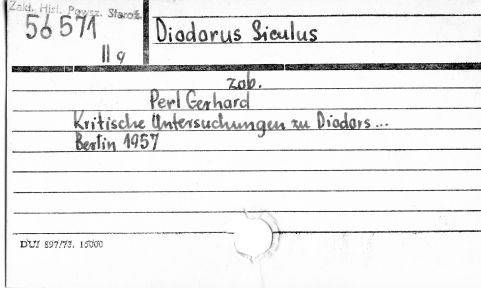 Zakł. Hist. Powsz. Staroż.
56571
II g
Diodorus Siculus
zob.
Perl Gerhard
Kritische Untersuchungen zu Diodors ...
Berlin 1957
DUJ 897/73. 15000